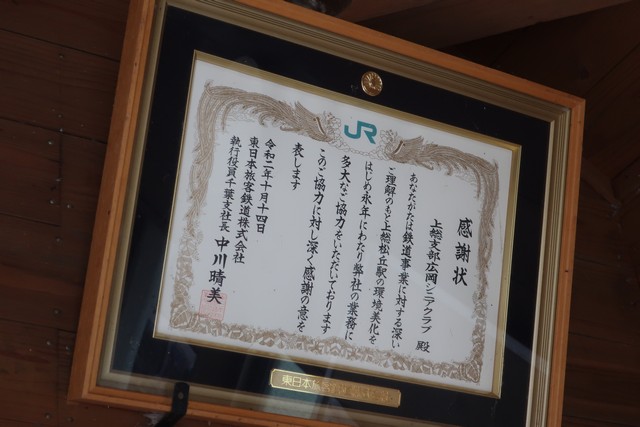 JR
感謝状
上総支部広岡シニアクラブ 殿
あなたがたは鉄道事業に対する深い
ご理解のもと上総松丘駅の環境美化を
はじめ永年にわたり弊社の業務に
多大なご協力をいただいております
このご協力に対し深く感謝の意を
表します
令和二年十月十四日
東日本旅客鉄道株式会社
執行役員千葉支社長 中川晴美
東日本